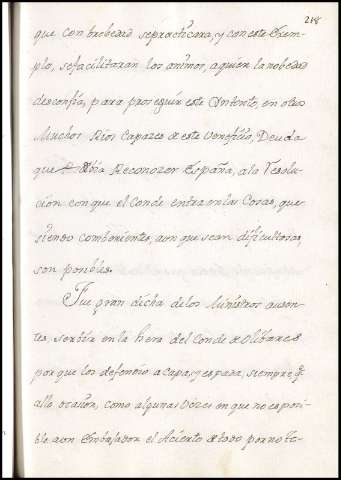 218
que con brebedad sepracticara, y con este Exem-
plo, se facilitaran los animos, aquien la nobedad
desconfia, para proseguir este Intento, en otros
Muchos Rios Capazes de este Veneficio, Deuda
que debia Reconozer España, ala Resolu-
cion con que el Conde entra en las Cosas, que
siendo combenientes, aon que sean dificultosas,
son posibles.
Fue gran dicha delos Ministros auson-
tes, serbir en la hera del Conde de Olibares
por que los defendio a capa, y espada, siempre q.
allo ocasion, como algunas Vezes en que no es posi-
ble a un Embajador el Acierto de todo por no te-